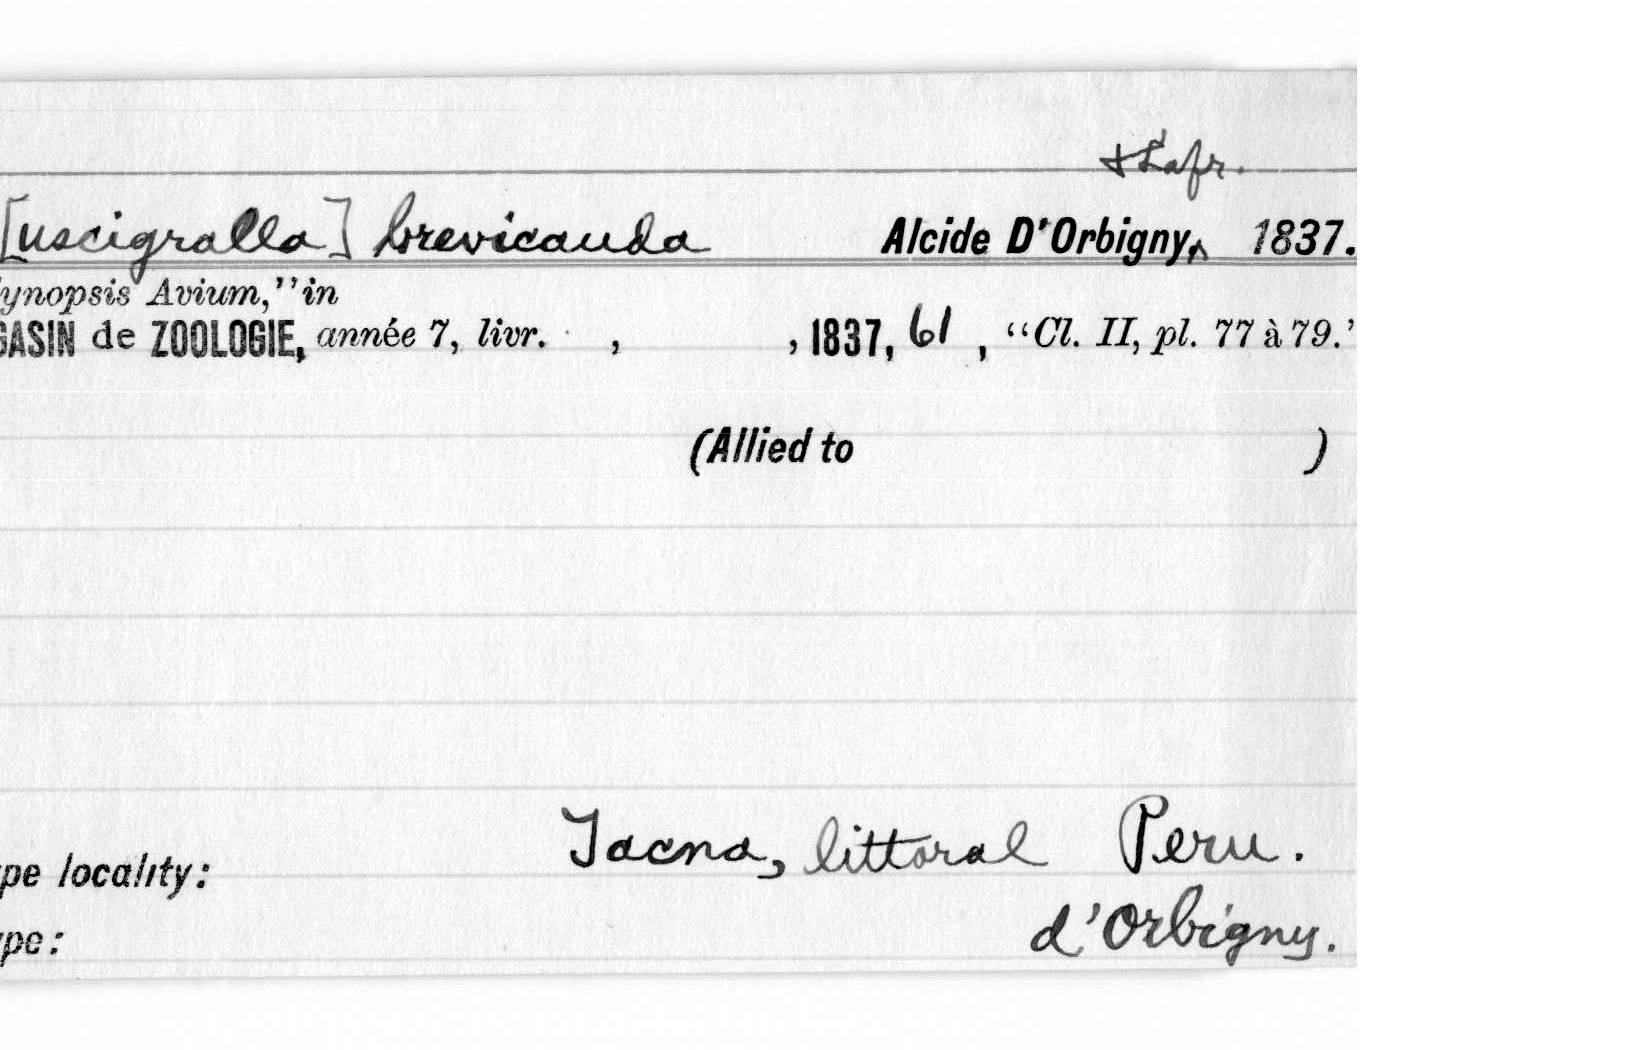 + Lafr.
[uscigralla] brevicauda Alcide D'Orbigny,^ 1837.
ynopsis Avium," in
GASIN de ZOOLOGIE, année 7, livr. , , 1837, 61 , "Cl. II, pl. 77 à 79.'
(Allied to )
Tacna, littoral Peru.
pe locality:
d'Orbigny.
pe: